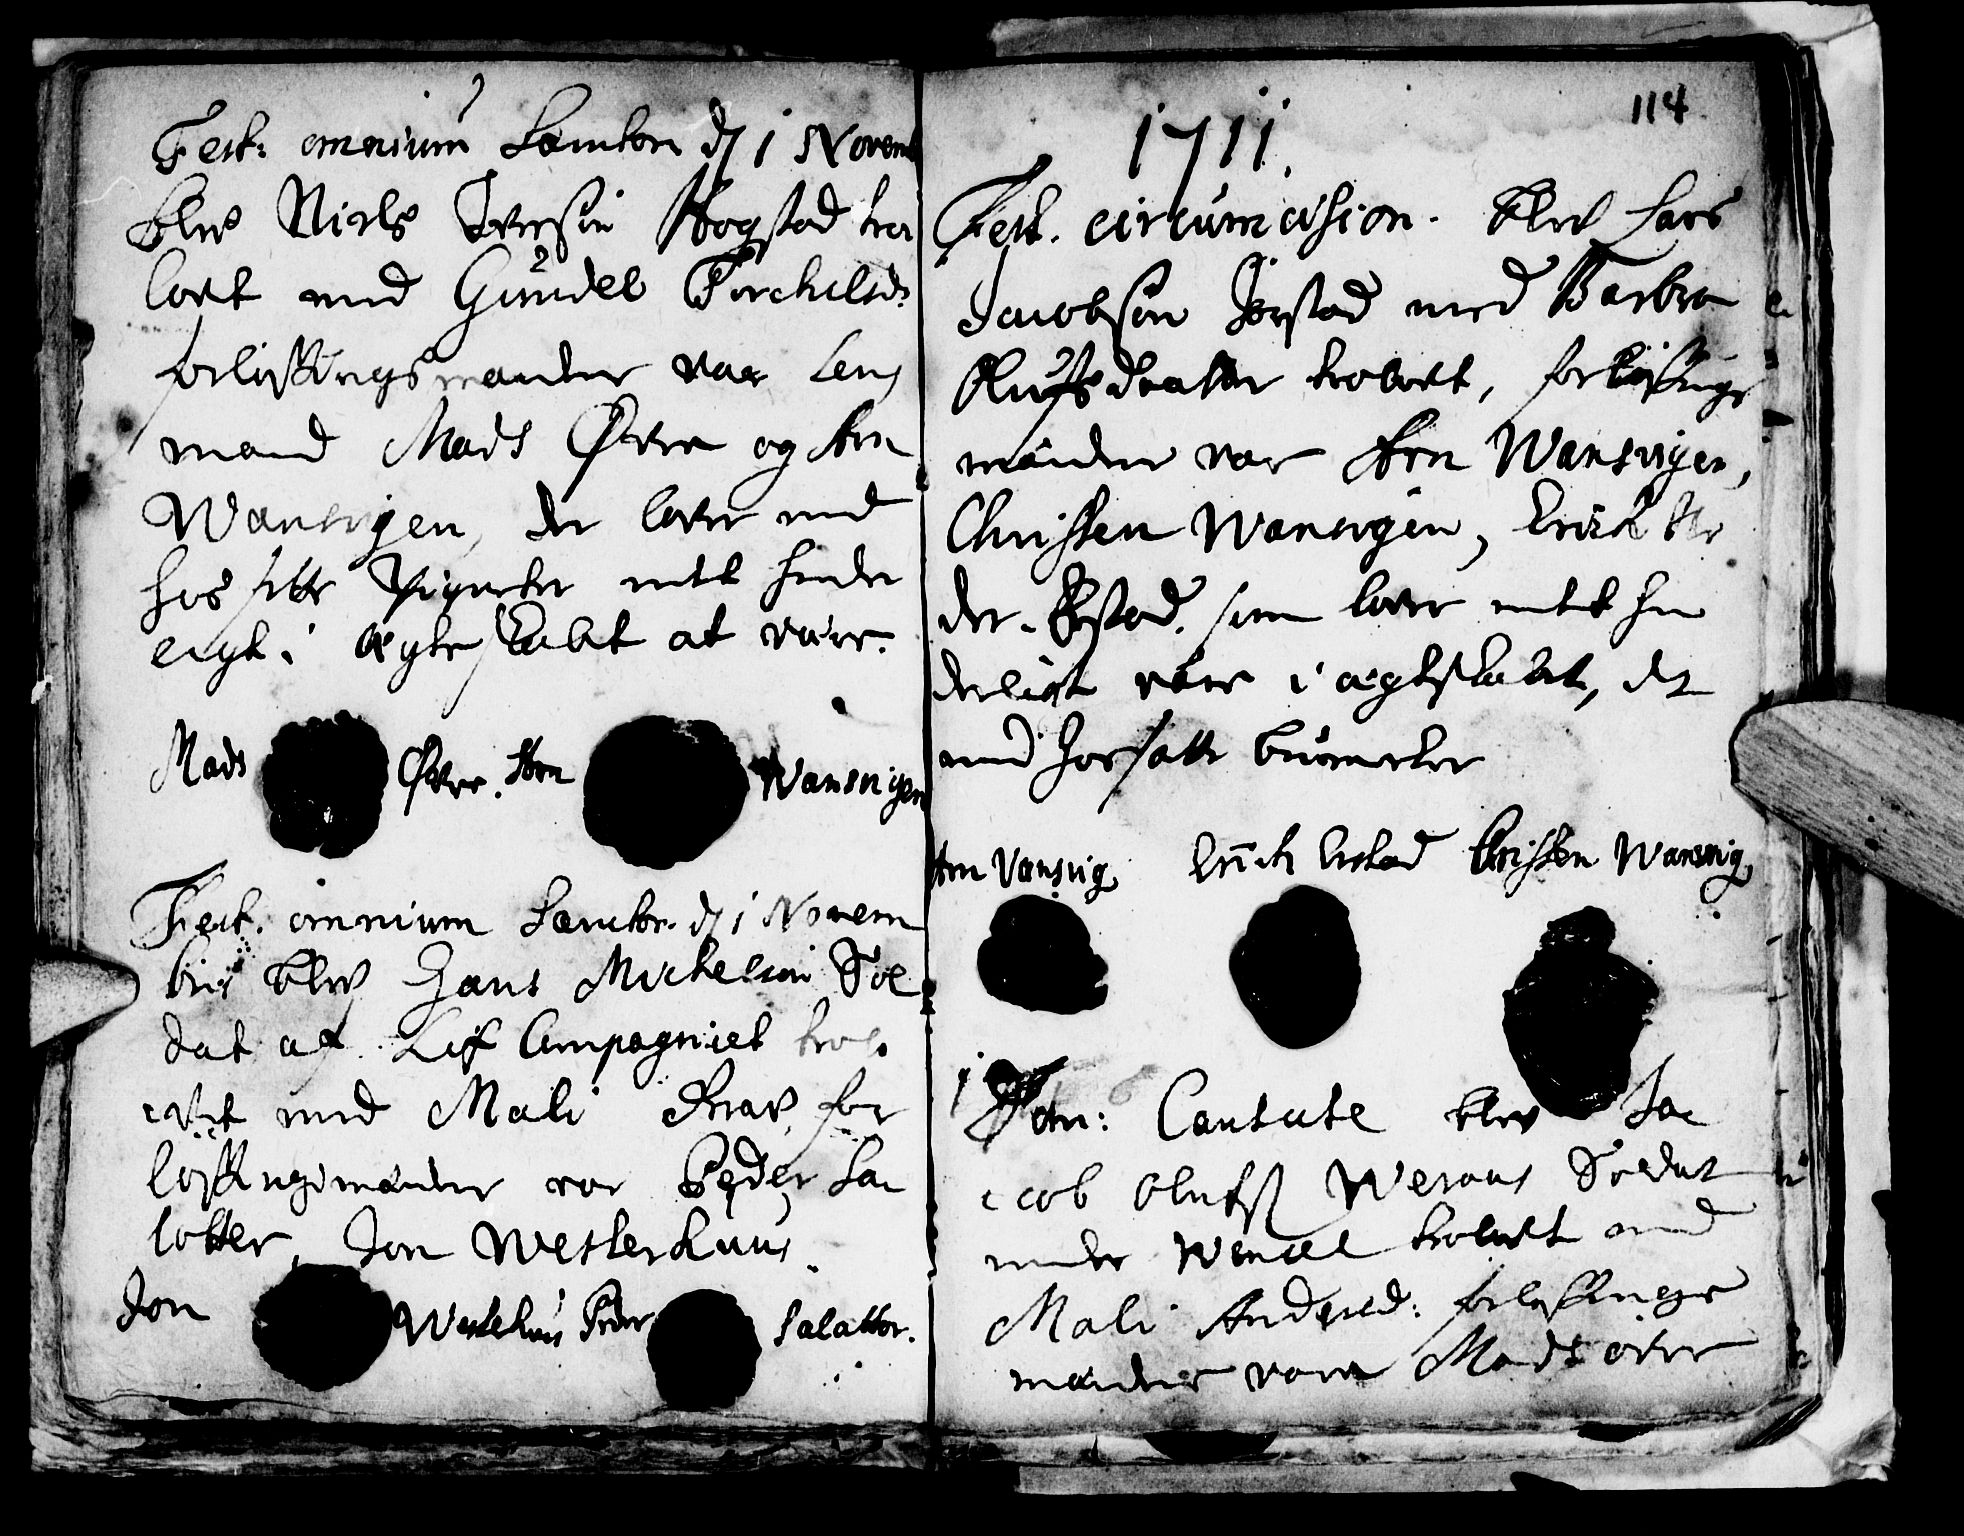 Fest: omnium Sanctor. d 1 Novemb
blev Niels Iversøn Hogstad tro
lovet med Gundel Torchilsd:
forløftings mænder var Lens
mand Mads Øvre og Arn
Wansvigen, der lover med
hos satte Signeter intet hinder
ligt i ægteskabet at være.
Mads Øvre. Arn Wansvigen
Fest: omnium Sanctor. d 1 Novem
bris blev Hans Michelsøn Sol
dat af Lif Compagniet trol
ovet med Mali for
løftingsmænder var Peder Sa
lotter, Jon Westerhuus.
Jon Westehuus Peder Salatter.
114
1711.
Fest. circumcision. blev Lars
Jacobsøn med Barbra
Olufsdaatter trolovet, forløftings
mænder var Arn Wansvigen,
Christen Wansvigen, Erick
der som lover intet hin
derligt være i ægteskabet, det
med hossatte bumerker
Arn Vansvig Erich Erstad Christen Wansvig
Dom: Cantate blev Ja
cob Olufss Weraas Soldat
under trolovet med
Mali Andersd: forløftings
mænder vare Mads övre